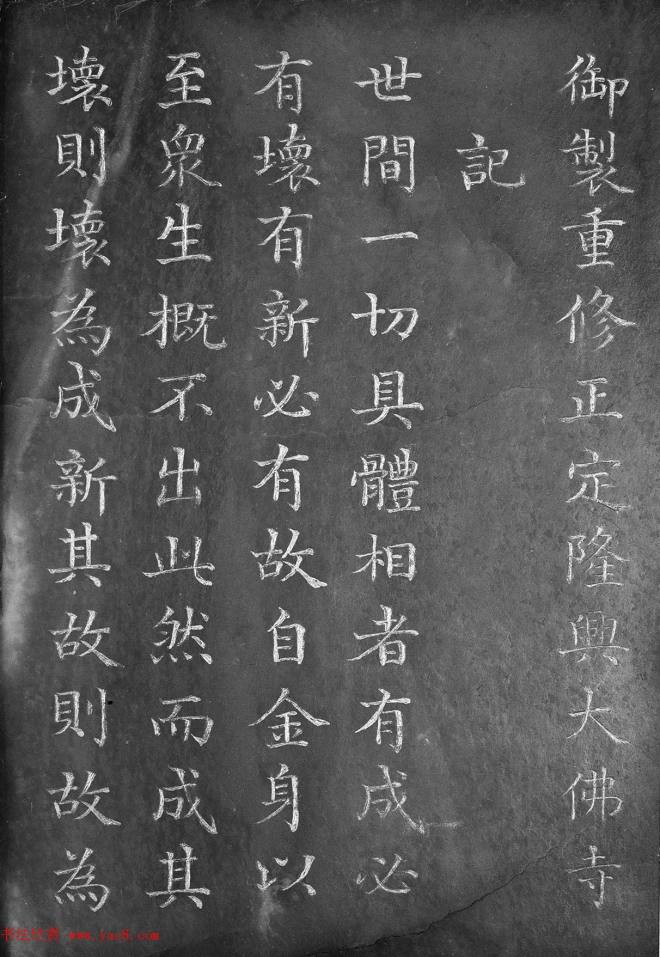 御製重修正定隆興大佛寺
記
世間一切具體相者有成必
有壞有新必有故自金身以
至衆生概不出此然而成其
壞則壞為成新其故則故為
书法欣赏 www.yac8.com